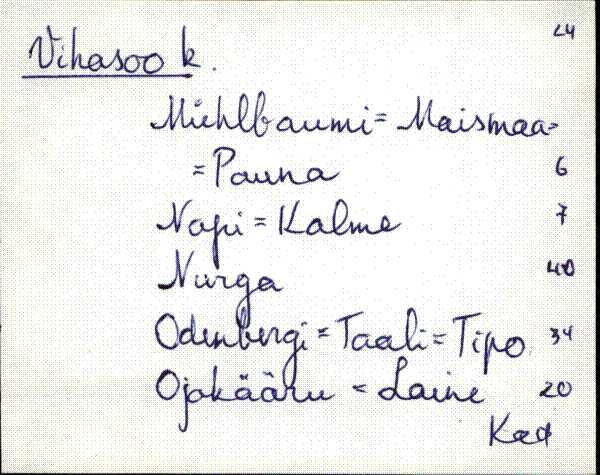 24
Vihasoo k.
Mühlbaumi = Maismaa =
= Pauna 6
Napi = Kalme 7
Nurga 40
Odenbergi = Taali = Tipo 34
Ojakääru = Laine 20
Kad